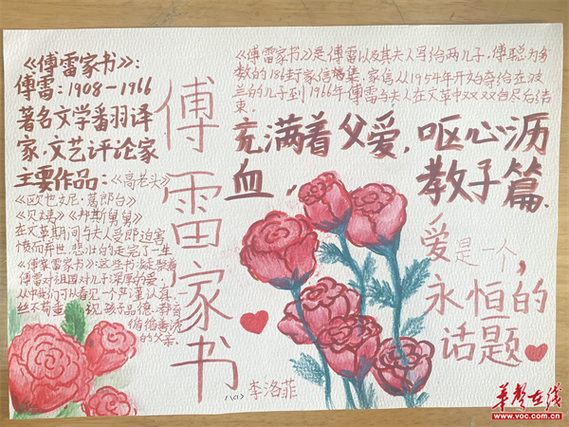 《傅雷家书》:
傅雷:1908-1966
著名文学翻译
家,文艺评论家
主要作品:《高老头》
《欧也妮·葛郎台》
《贝姨》《邦斯舅舅》
在文革期间与夫人受郎迫害
愤而弃世,悲壮的走完了一生
《傅雷家书》:这些书,凝聚着
傅雷对祖国对儿子深厚的爱.
从中我们可以看见一个严谨,认真,一
丝不苟
的父亲.
傅雷家书
《傅雷家书》是傅雷以及其夫人写给两儿子,傅聪为多
数的186封家信
家信从1954年开始寄给在波
兰的儿子到1966年傅雷与夫人在文革中双双自尽后结
束.
充满着父爱,呕心沥
血,教子篇.
爱是一个,
永恒的
话题
八(1)李洛菲
华声在线
www.voc.com.cn